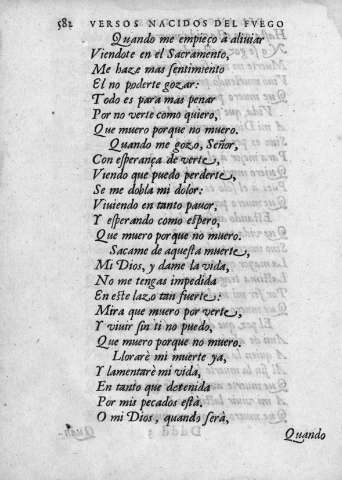 582 VERSOS NACIDOS DEL FVEGO
Quando me empieço a aliuiar
Viendote en el Sacramento,
Me haze mas sentimiento
El no poderte gozar:
Todo es para mas penar
Por no verte como quiero,
Que muero porque no muero.
Quando me gozo, Señor,
Con esperança de verte,
Viendo que puedo perderte,
Se me dobla mi dolor:
Viuiendo en tanto pauor,
Y esperando como espero,
Que muero porque no muero.
Sacame de aquesta muerte,
Mi Dios, y dame la vida,
No me tengas impedida
En este lazo tan fuerte:
Mira que muero por verte,
Y viuir sin ti no puedo,
Que muero porque no muero.
Llorarè mi muerte ya,
Y lamentarè mi vida,
En tanto que detenida
Por mis pecados està,
O mi Dios, quando serà,
Quando